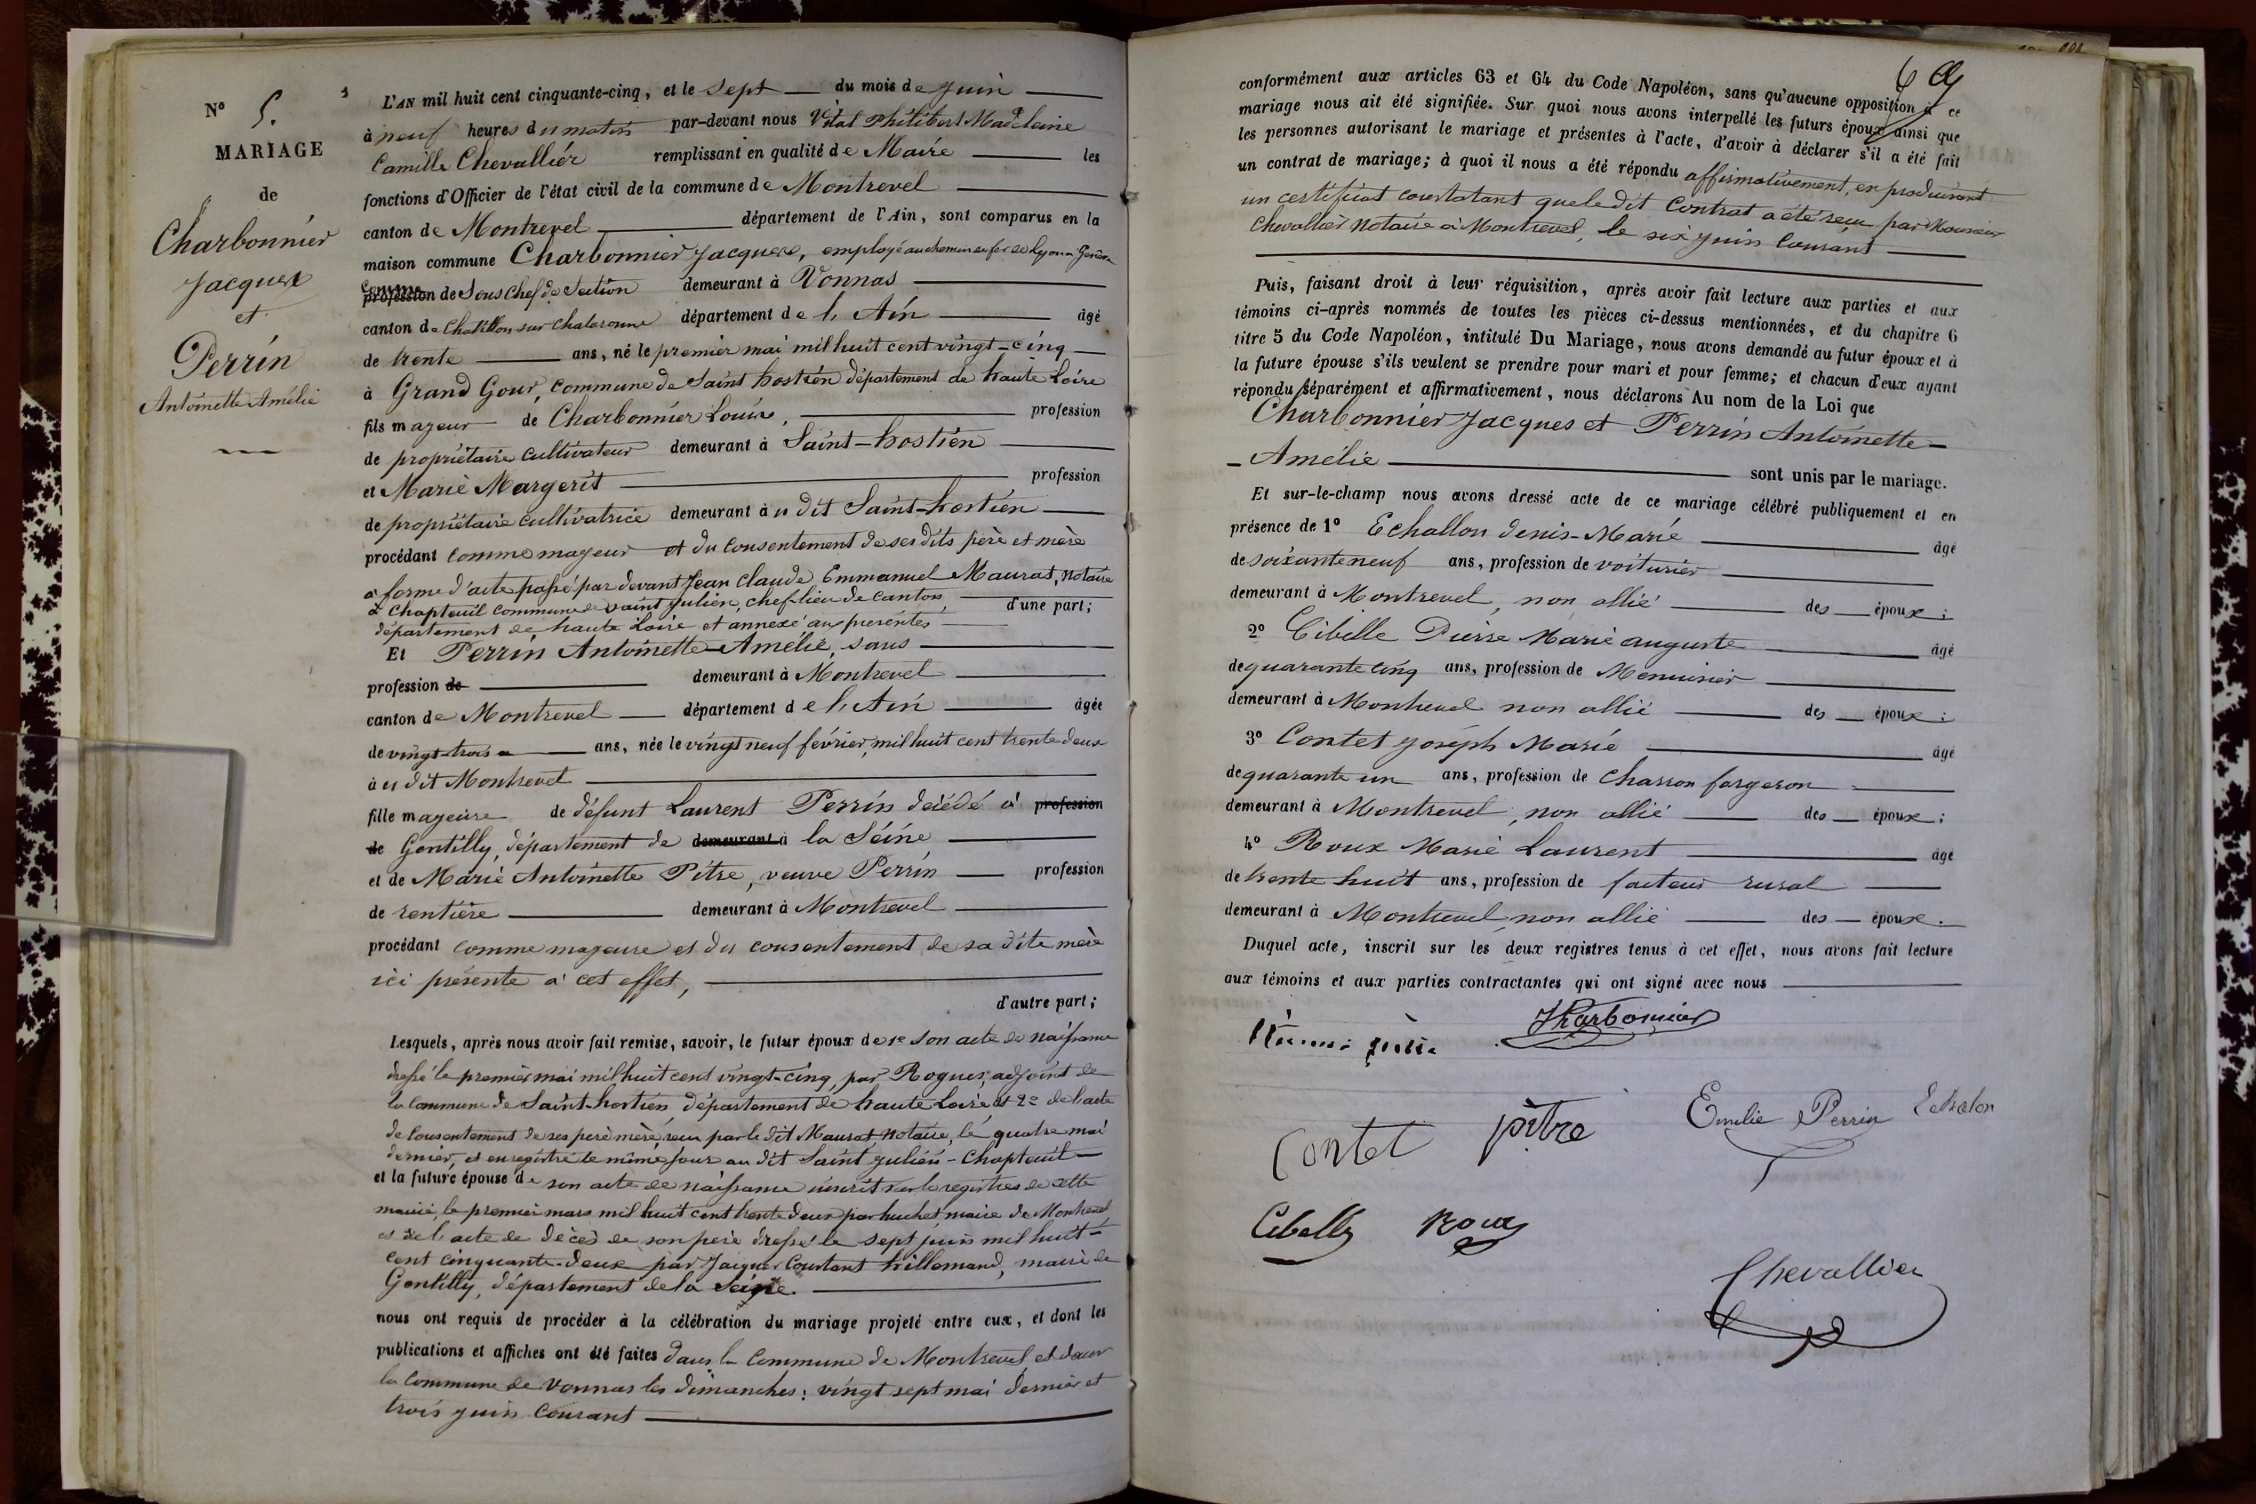 N° 5.
MARIAGE
de
Charbonnier
Jacques
et
Perrin
Antoinette Amélie
L'AN mil huit cent cinquante-cinq, et le sept du mois de juin
à neuf heures du matin par-devant nous Vital Philibert Madeleine
Camille Chevallier remplissant en qualité de Maire les
fonctions d'Officier de l'état civil de la commune de Montrevel
canton de Montrevel département de l'Ain, sont comparus en la
maison commune Charbonnier Jacques, employé au chemin de fer de Lyon à Genève
comme profession de Sous Chef de Section demeurant à Vonnas
canton de Chatillon sur Chalaronne département de l'Ain âgé
de trente ans, né le premier mai mil huit cent vingt-cinq
à Grand Gour, commune de Saint hostien département de haute Loire
fils majeur de Charbonnier Louis, profession
de propriétaire cultivateur demeurant à Saint-hostien
et Marie Margerit profession
de propriétaire cultivatrice demeurant à u dit Saint-hostien
procédant comme majeur et du consentement de ses dits père et mère
à forme d'acte passé par devant Jean Claude Emmanuel Maurat, notaire
à Chapteuil commune de Saint Julien, chef-lieu de canton,
d'une part;
département de haute Loire et annexé aux présentes
Et Perrin Antoinette Amélie, sans
profession de demeurant à Montrevel
canton de Montrevel département de l'Ain âgée
de vingt-trois ans, née le vingt neuf février mil huit cent trente deux
à u dit Montrevel
fille majeure de défunt Laurent Perrin décédé à profession
de Gentilly, département de demeurant à la Séine
et de Marie Antoinette Pitre, veuve Perrin profession
de rentière demeurant à Montrevel
procédant comme majeure et du consentement de sa dite mère
ici présente à cet effet,
d'autre part;
Lesquels, après nous avoir fait remise, savoir, le futur époux de 1° son acte de naissance
dressé le premier mai mil huit cent vingt-cinq, par Roques, adjoint de
la commune de Saint-hostien département de haute Loire et 2° de l'acte
de consentement de ses père mère reçu par le dit Maurat, Notaire, le quatre mai
dernier, et enregistré le même jour au dit Saint Julien-Chapteuil
et la future épouse de son acte de naissance inscrit sur le registres de cette
mairie, le premier mars mil huit cent trente deux par huchet maire de Montrevel
et de l'acte de décès de son père dressé le sept juin mil huit-
cent cinquante-deux par Jacques Constant hillemand, maire de
Gentilly, département de la Seine.
nous ont requis de procéder à la célébration du mariage projeté entre eux, et dont les
publications et affiches ont été faites dans la Commune de Montrevel et dans
la Commune de Vonnas les dimanches: vingt sept mai dernier et
trois juin courant
conformément aux articles 63 et 64 du Code Napoléon, sans qu'aucune opposition à ce
mariage nous ait été signifiée. Sur quoi nous avons interpellé les futurs époux ainsi que
les personnes autorisant le mariage et présentes à l'acte, d'avoir à déclarer s'il a été fait
un contrat de mariage; à quoi il nous a été répondu affirmativement, en produisant
un certificat constatant que le dit Contrat a été reçu par Monsieur
Chevallier Notaire à Montrevel, le six juin Courant
Puis, faisant droit à leur réquisition, après avoir fait lecture aux parties et aux
témoins ci-après nommés de toutes les pièces ci-dessus mentionnées, et du chapitre 6
titre 5 du Code Napoléon, intitulé Du Mariage, nous avons demandé au futur époux et à
la future épouse s'ils veulent se prendre pour mari et pour femme; et chacun d'eux ayant
répondu séparément et affirmativement, nous déclarons Au nom de la Loi que
Charbonnier Jacques et Perrin Antoinette-
-Amélie sont unis par le mariage.
Et sur-le-champ nous avons dressé acte de ce mariage célébré publiquement et en
présence de 1° Echallon denis-Marie âgé
de soixante neuf ans, profession de voiturier
demeurant à Montrevel, non allié des époux;
2° Cibille Pierre Marie auguste âgé
de quarante cinq ans, profession de Menuisier
demeurant à Montrevel non allié des époux;
3° Contet joseph Marie âgé
de quarante un ans, profession de Charron forgeron
demeurant à Montrevel, non allié des époux;
4° Roux Marie Laurent âgé
de trente huit ans, profession de facteur rural
demeurant à Montrevel, non allié des époux.
Duquel acte, inscrit sur les deux registres tenus à cet effet, nous avons fait lecture
aux témoins et aux parties contractantes qui ont signé avec nous
JCharbonnier
Contet pitre Emilie Perrin Echalon
Cibelle Roux
Chevallier